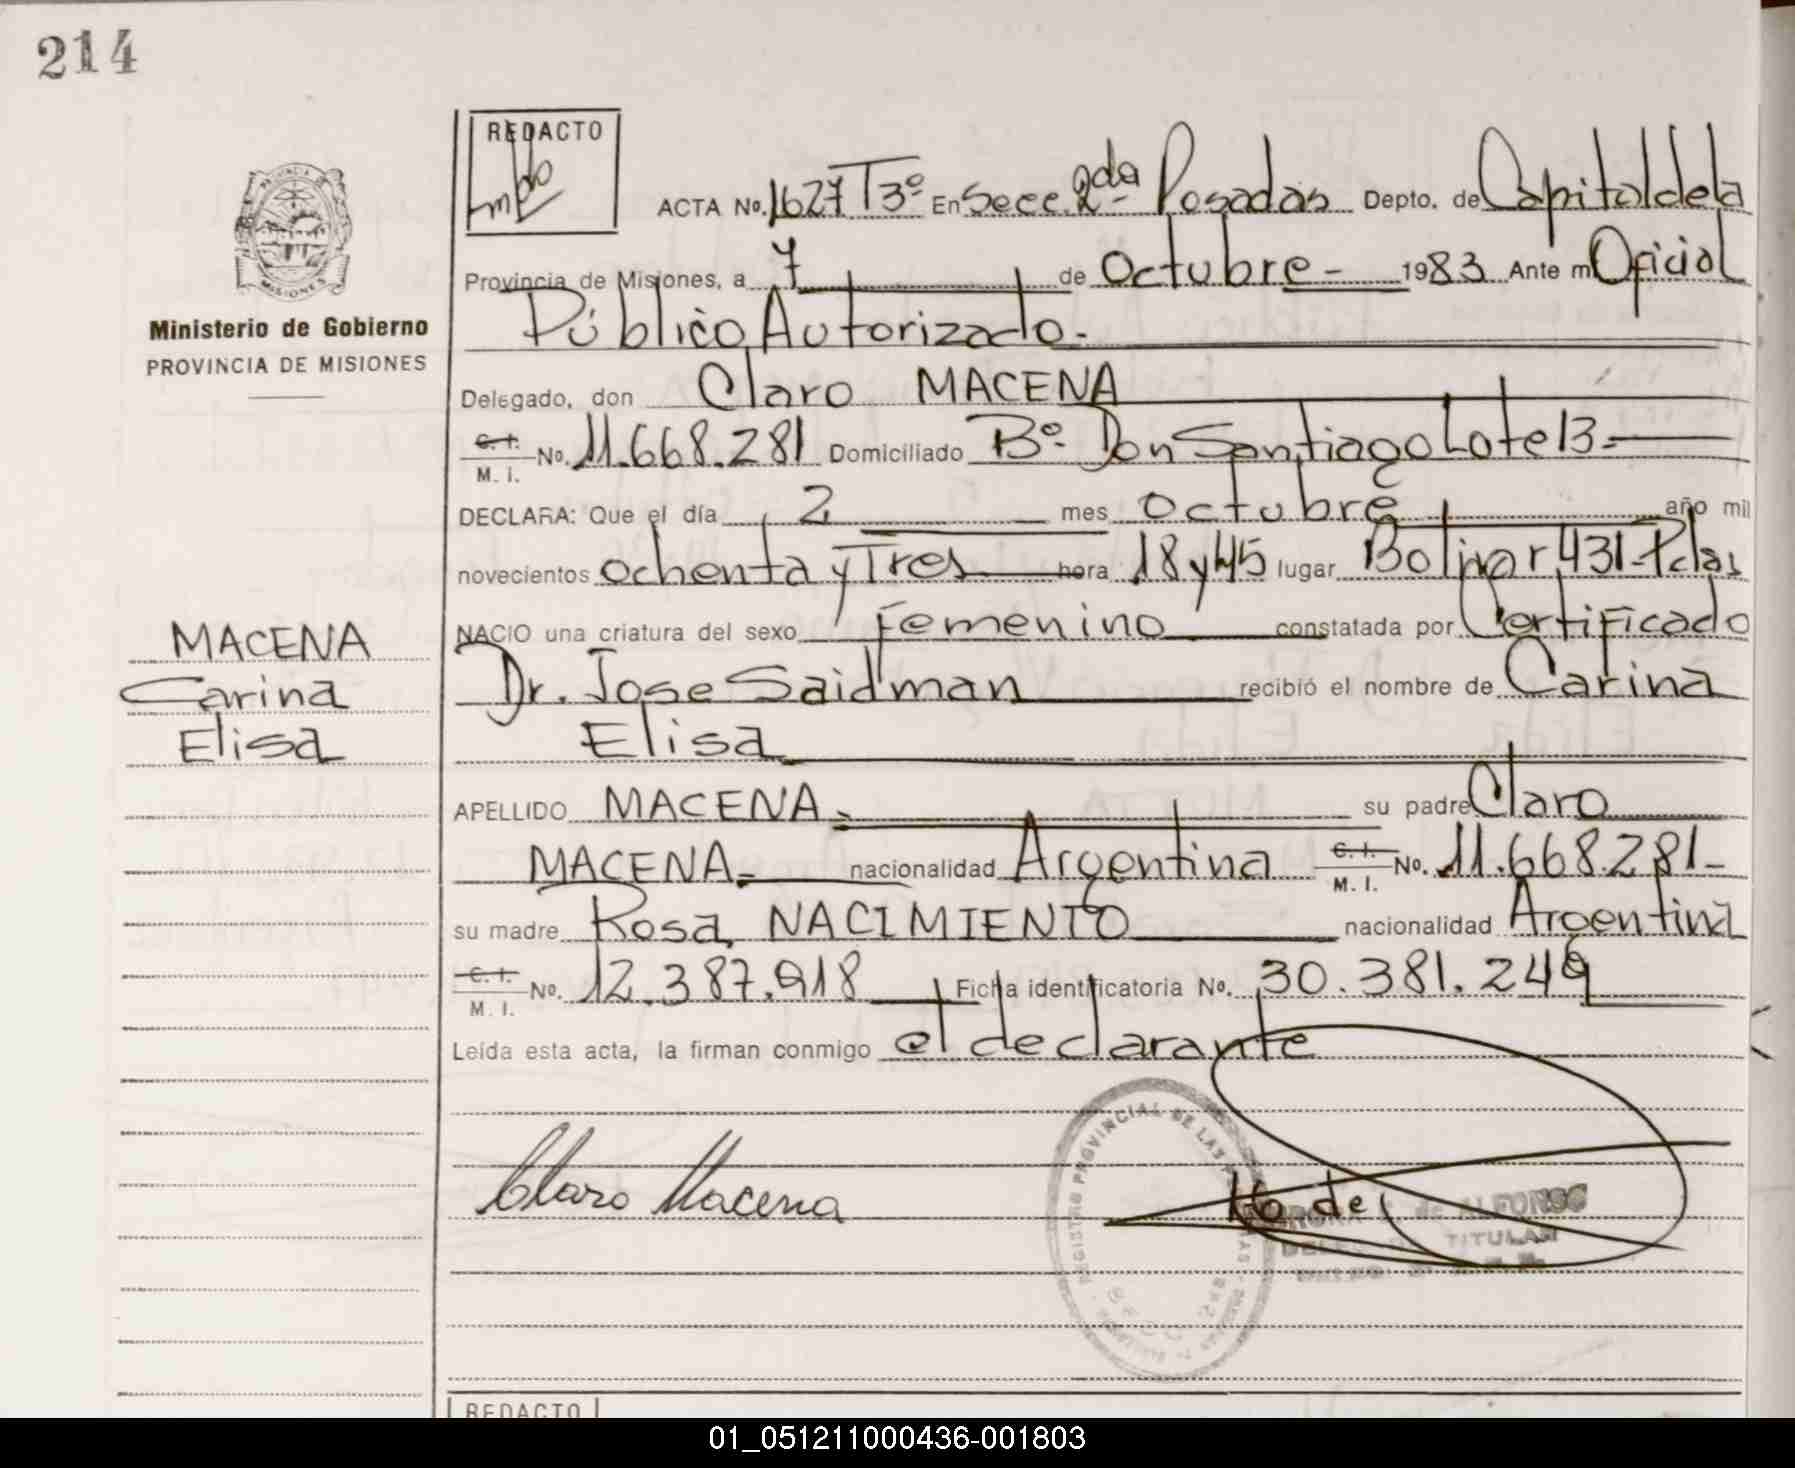 214
REDACTO
ACTA No. 1627 T3º En Secc. 2da Posadas Depto. de Capital de la
Provincia de Misiones, a 7 de Octubre - 1983 Ante mi Oficial
Público Autorizado.-
Ministerio de Gobierno
PROVINCIA DE MISIONES
Delegado, don Claro MACENA
C. I. M. I. No. 11.668.281 Domiciliado Bº Don Santiago Lote 13 -
DECLARA: Que el día 2 mes octubre año mil
novecientos ochenta y Tres hora 18 y 45 lugar Bolivar 431-Pdas
NACIO una criatura del sexo Femenino constatada por Certificado
Dr. Jose Saidman recibió el nombre de Carina
Elisa
MACENA
Carina
Elisa
APELLIDO MACENA.- su padre Claro
MACENA.- nacionalidad Argentina C. I. M. I. No. 11.668.281-
su madre Rosa NACIMIENTO nacionalidad Argentina
C. I. M. I. No. 12.387.918 Ficha identificatoria No. 30.381.249
Leída esta acta, la firman conmigo el declarante
Claro Macena
REGISTRO PROVINCIAL DE LAS
DE ALFONSO
TITULAR
REDACTO
01_051211000436-001803